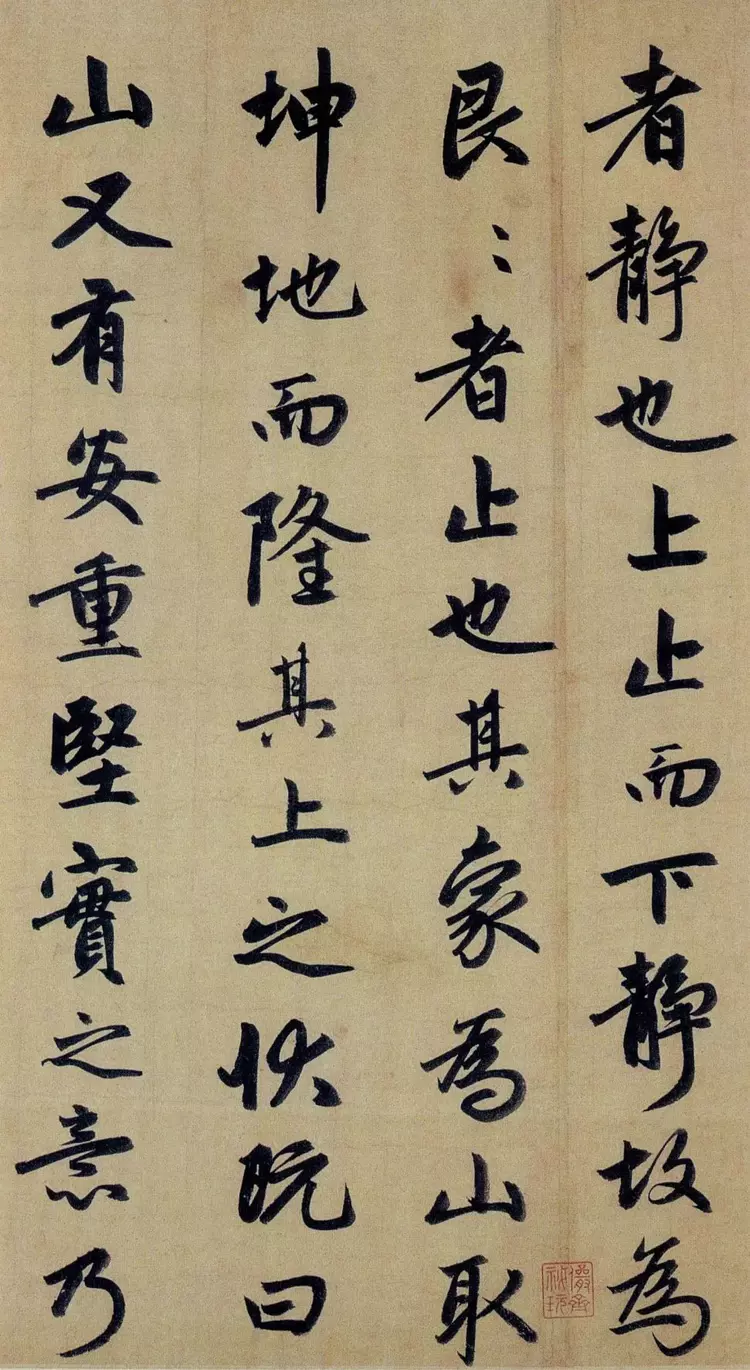 者靜也上止而下靜故為
艮〻者止也其象為山取
坤地而隆其上之狀既曰
山又有安重堅實之意乃